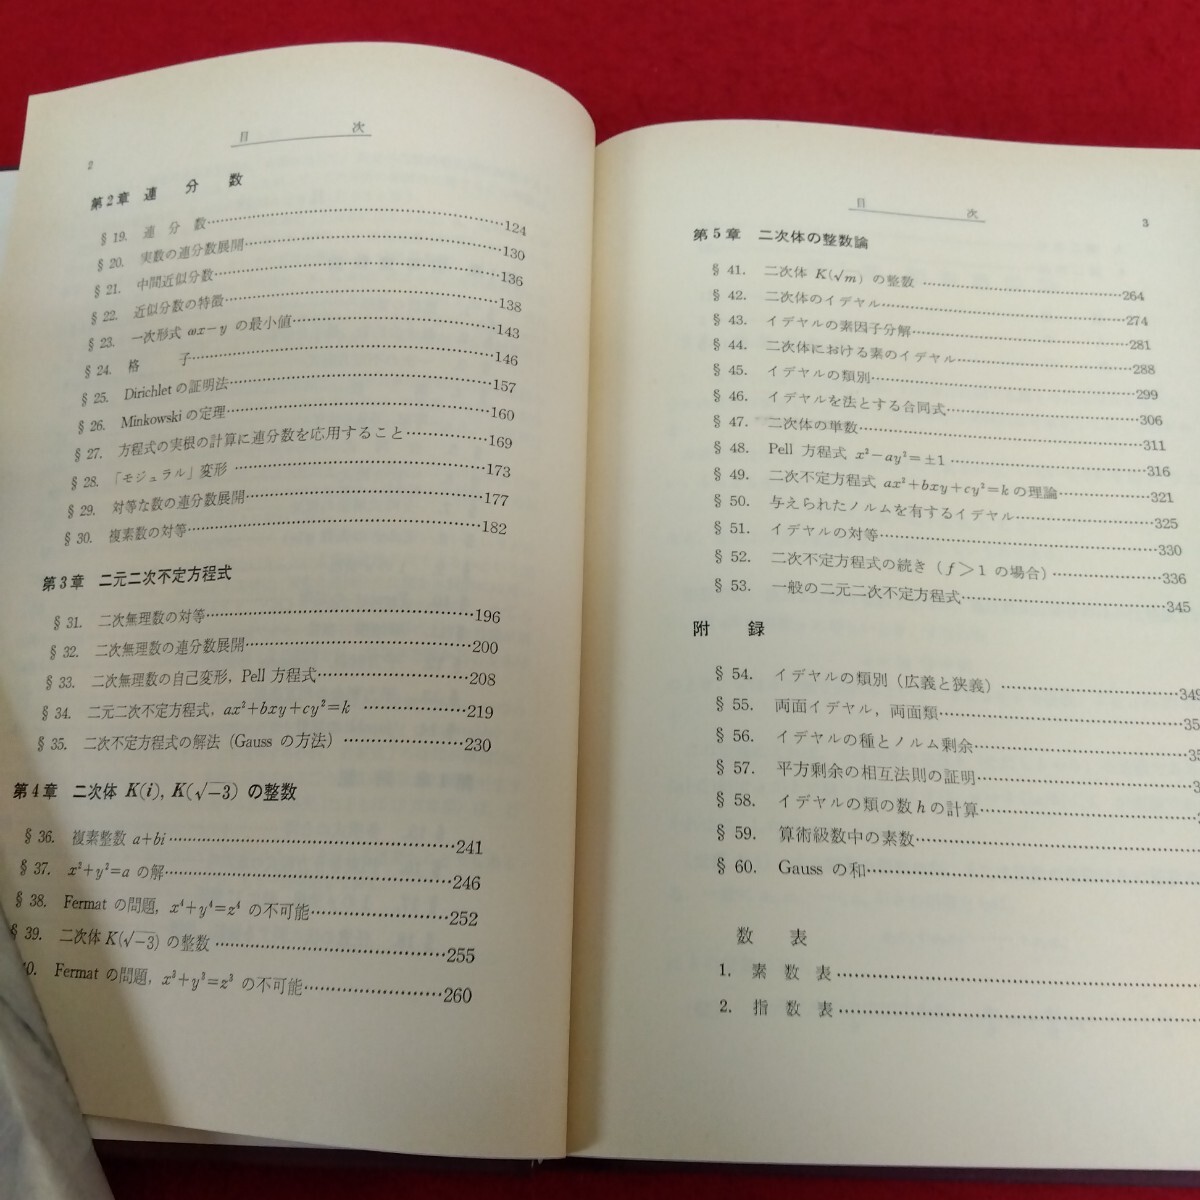 目 次
2
第2章 連 分 数
§ 19. 連 分 数……124
§ 20. 実数の連分数展開……130
§ 21. 中間近似分数……136
§ 22. 近似分数の特徴……138
§ 23. 一次形式 ωx−y の最小値……143
§ 24. 格 子……146
§ 25. Dirichlet の証明法……157
§ 26. Minkowski の定理……160
§ 27. 方程式の実根の計算に連分数を応用すること……169
§ 28. 「モジュラル」変形……173
§ 29. 対等な数の連分数展開……177
§ 30. 複素数の対等……182
第3章 二元二次不定方程式
§ 31. 二次無理数の対等……196
§ 32. 二次無理数の連分数展開……200
§ 33. 二次無理数の自己変形, Pell 方程式……208
§ 34. 二元二次不定方程式, ax²+bxy+cy²=k……219
§ 35. 二次不定方程式の解法 (Gauss の方法)……230
第4章 二次体 K(i), K(√−3) の整数
§ 36. 複素整数 a+bi……241
§ 37. x²+y²=a の解……246
§ 38. Fermat の問題, x⁴+y⁴=z⁴ の不可能……252
§ 39. 二次体 K(√−3) の整数……255
40. Fermat の問題, x³+y³=z³ の不可能……260
目 次
3
第5章 二次体の整数論
§ 41. 二次体 K(√m) の整数……264
§ 42. 二次体のイデヤル……274
§ 43. イデヤルの素因子分解……281
§ 44. 二次体における素のイデヤル……288
§ 45. イデヤルの類別……299
§ 46. イデヤルを法とする合同式……306
§ 47. 二次体の単数……311
§ 48. Pell 方程式 x²−ay²=±1……316
§ 49. 二次不定方程式 ax²+bxy+cy²=k の理論……321
§ 50. 与えられたノルムを有するイデヤル……325
§ 51. イデヤルの対等……330
§ 52. 二次不定方程式の続き (f>1 の場合)……336
§ 53. 一般の二元二次不定方程式……345
附 録
§ 54. イデヤルの類別 (広義と狭義)……349
§ 55. 両面イデヤル, 両面類……35
§ 56. イデヤルの種とノルム剰余……35
§ 57. 平方剰余の相互法則の証明……
§ 58. イデヤルの類の数 h の計算……
§ 59. 算術級数中の素数……
§ 60. Gauss の和……
数 表
1. 素 数 表……
2. 指 数 表……